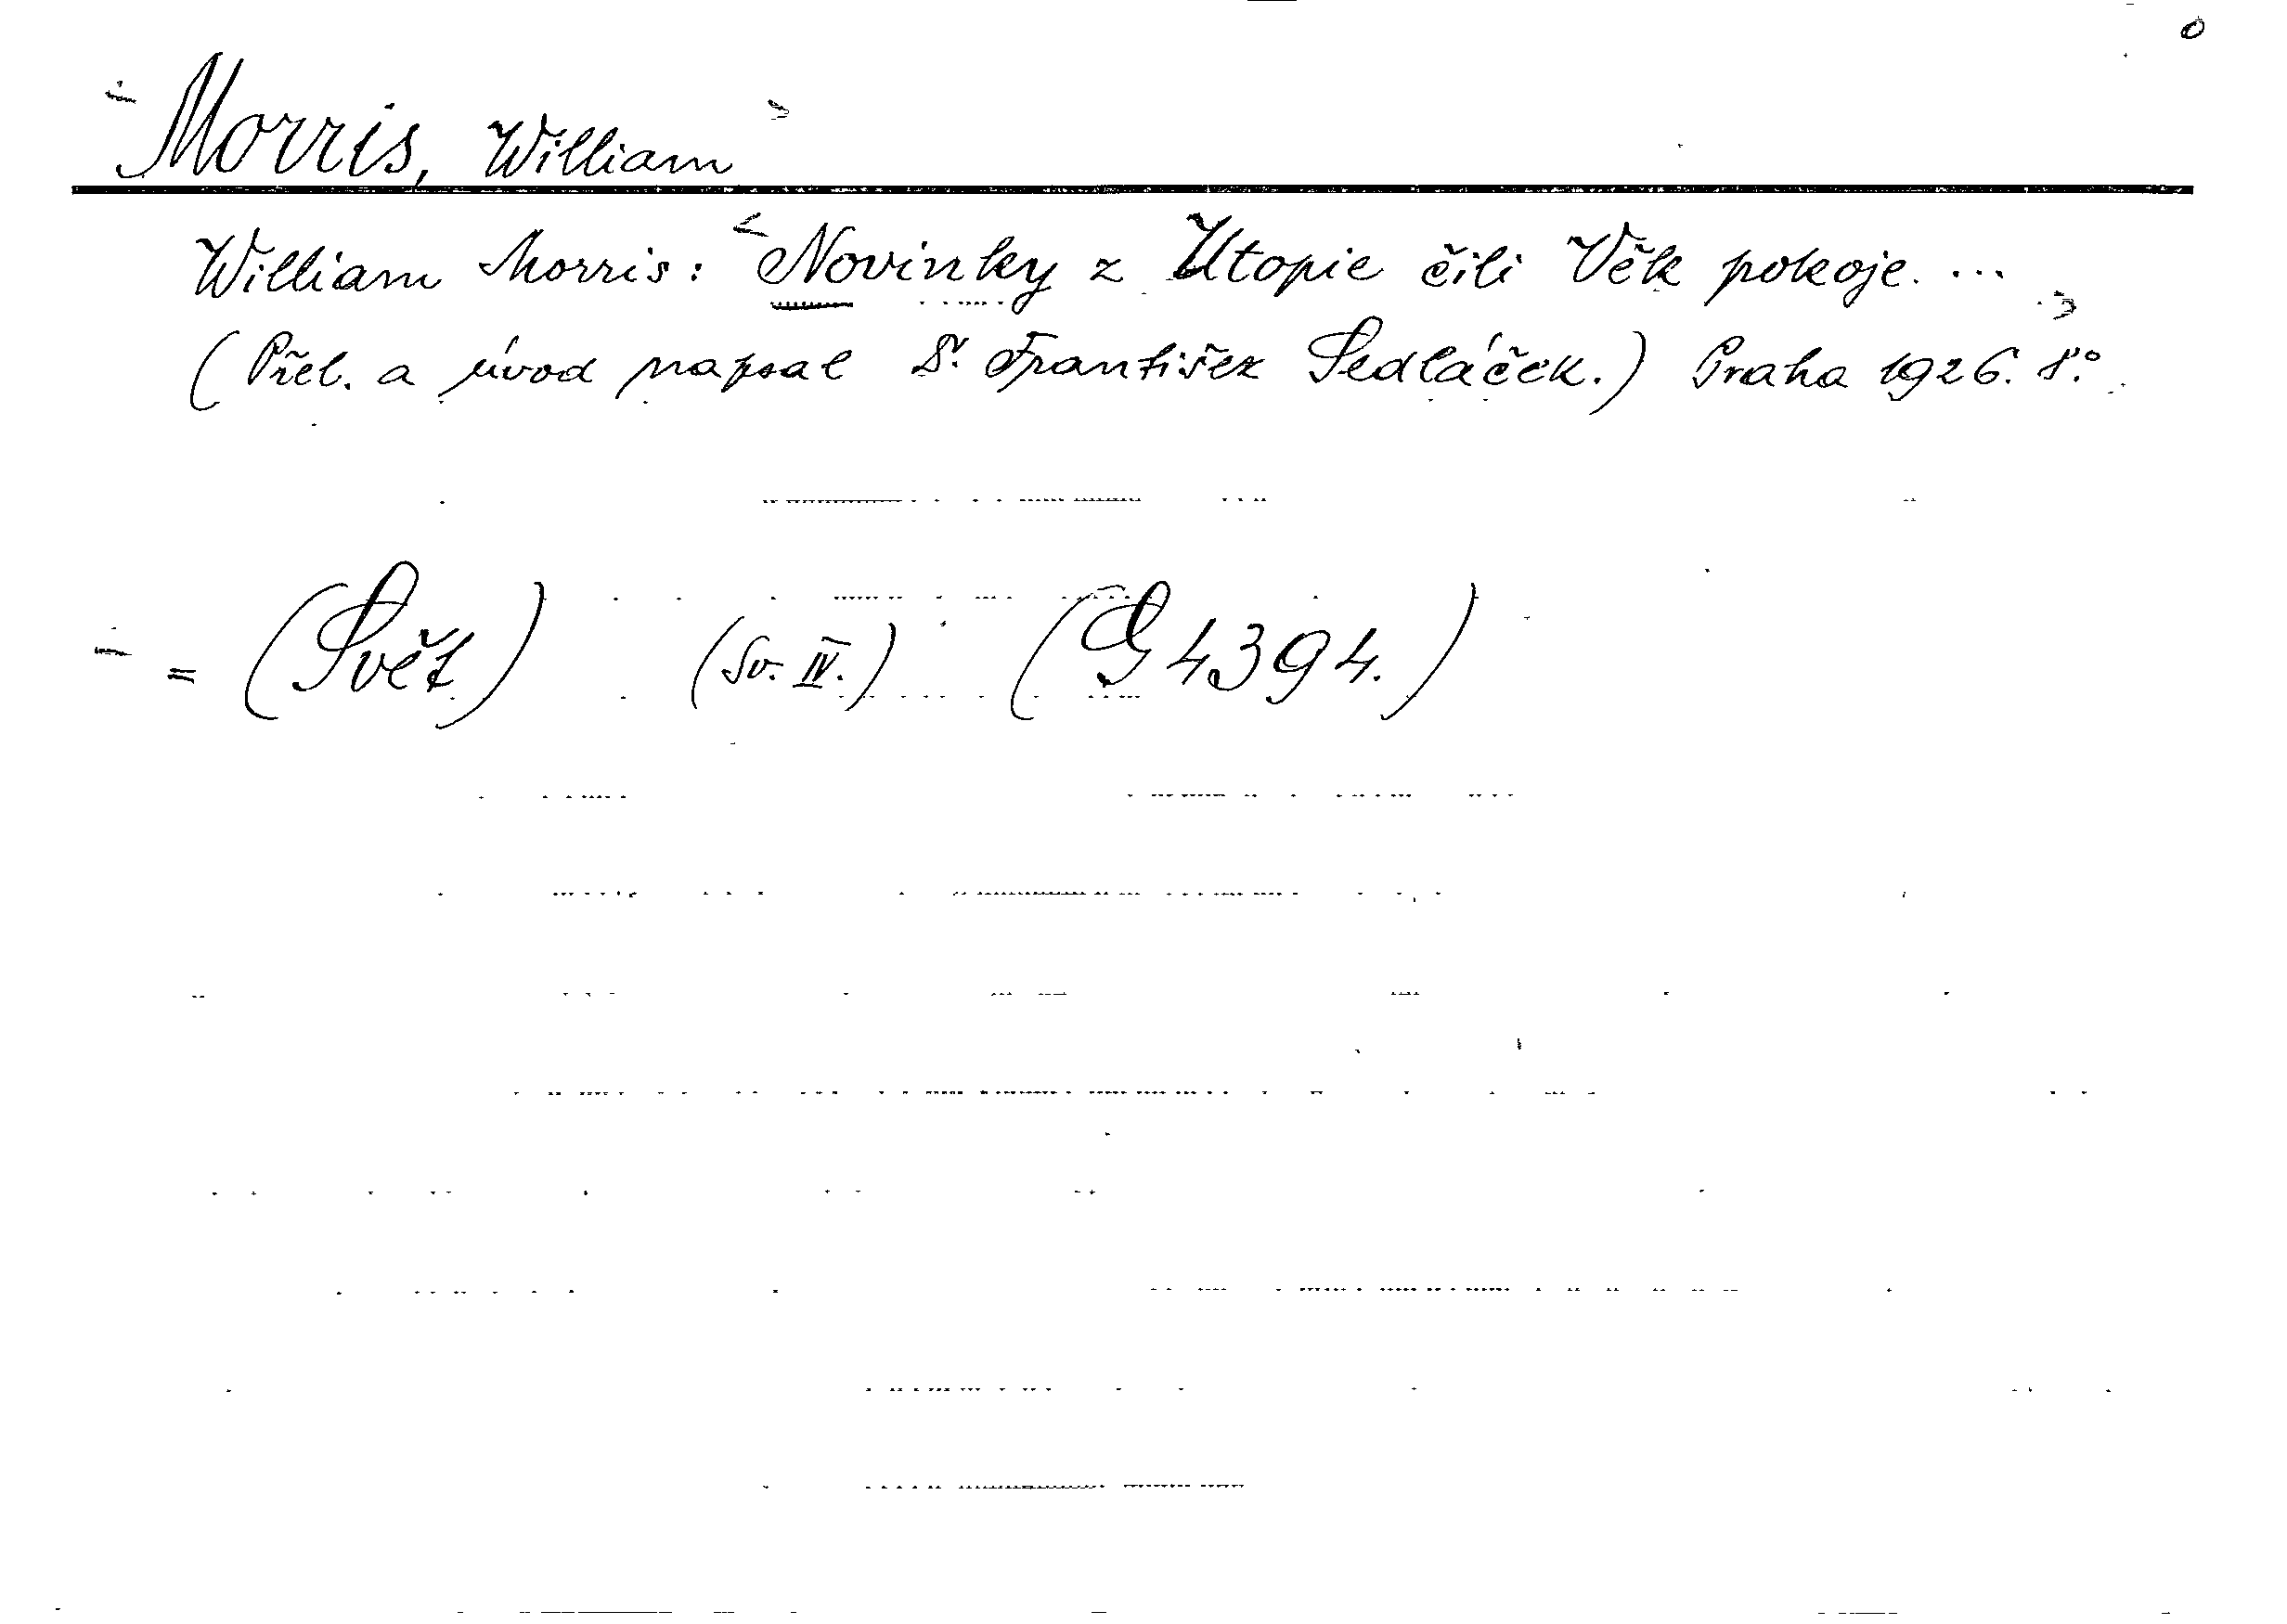 Morris, William
William Morris: Novinky z Utopie čili Věk pokoje. ...
(Přel. a úvod napsal Dr. František Sedláček.) Praha 1926. 8°.
= (Svět) (Sv. IV.) (G 4394.)